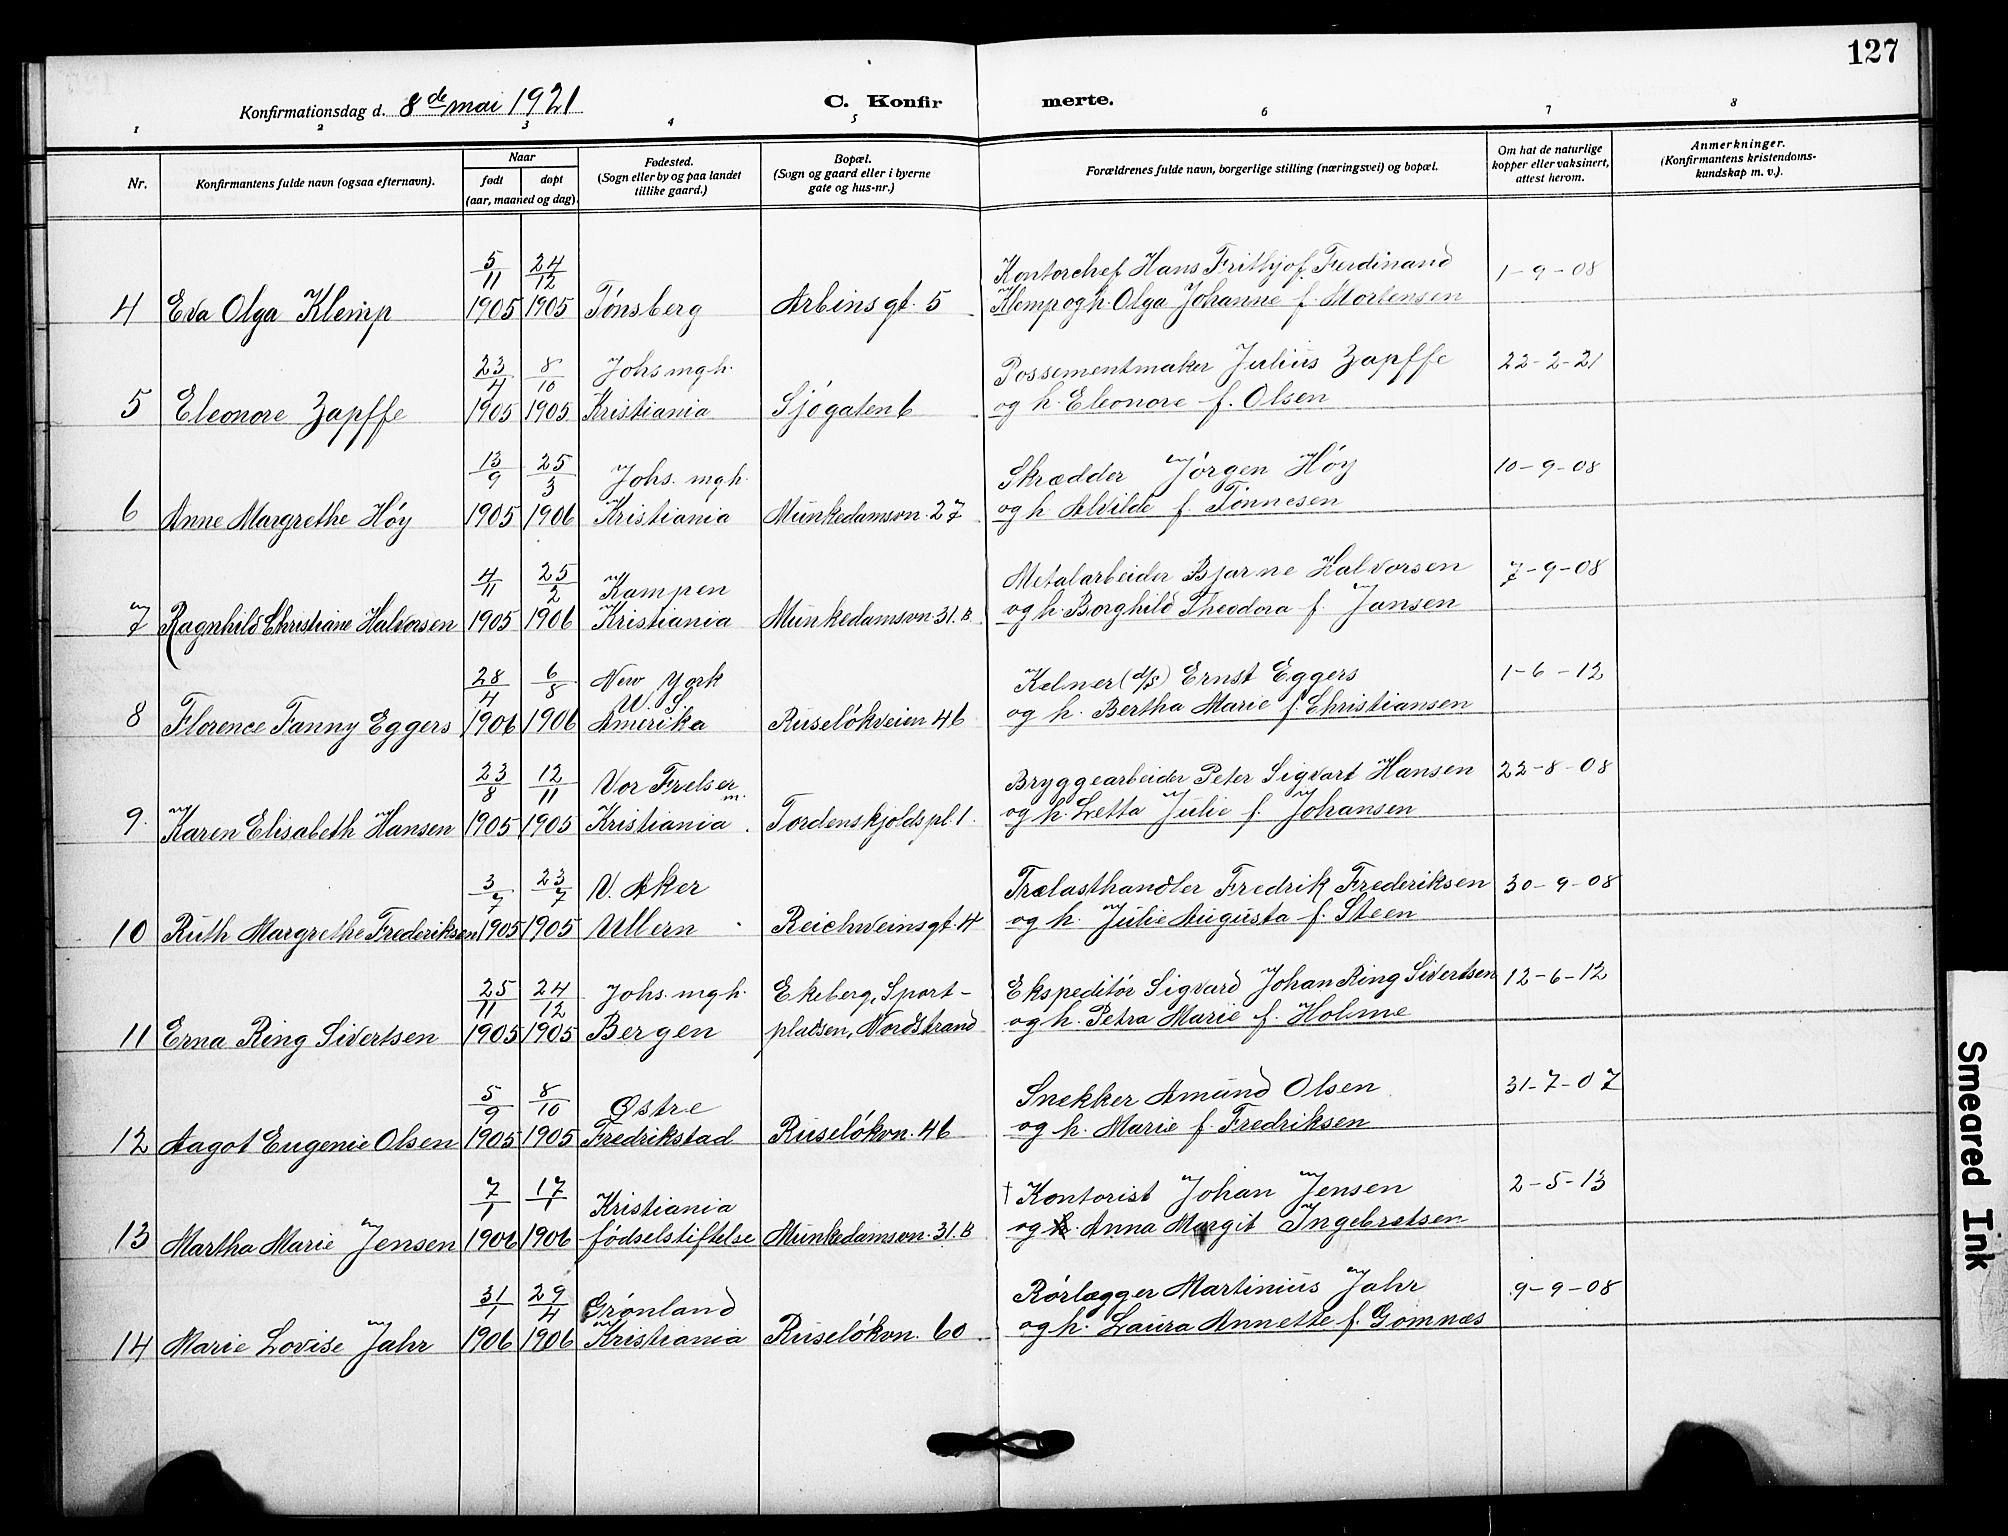 127
Konfirmationsdag d. 8de mai 1921
C. Konfirmerte.
1 2 3 4 5 6 7 8
Nr.
Konfirmantens fulde navn (ogsaa efternavn).
Naar
født døpt
(aar, maaned og dag).
Fødested.
(Sogn eller by og paa landet
tillike gaard.)
Bopæl.
(Sogn og gaard eller i byerne
gate og hus-nr.)
Forældrenes fulde navn, borgerlige stilling (næringsvei) og bopæl.
Om hat de naturlige
kopper eller vaksinert,
attest herom.
Anmerkninger.
(Konfirmantens kristendoms-
kundskap m. v.).
5/11 24/12 Kontorchef Hans Frithjof Ferdinand 1-9-08
4 Eva Olga Klemp 1905 1905 Tønsberg Arbinsgt. 5 Klemp og h. Olga Johanne f. Mortensen
23/4 8/10 Johs mgh. Possementmaker Julius Zapffe 22-2-21
5 Eleonore Zapffe 1905 1905 Kristiania Sjøgaten 6 og h. Eleonore f. Olsen
13/9 25/3 Johs. mgh. Skrædder Jørgen Høy 10-9-08
6 Anne Margrethe Høy 1905 1906 Kristiania Munkedamsvn. 27 og h. Alvilde f. Tønnesen
4/11 25/2 Kampen Metalarbeider Bjarne Halvorsen 7-9-08
7 Ragnhild Christiane Halvorsen 1905 1906 Kristiania Munkedamsvn 31. B og h. Borghild Theodora f. Jansen
28/4 6/8 New York Kelner (d/s) Ernst Eggers 1-6-12
U. S.
8 Florence Fanny Eggers 1906 1906 Amerika Ruseløkveien 46 og h. Bertha Marie f. Christiansen
23/8 12/11 Vor Frelser m. Bryggearbeider Peter Sigvart Hansen 22-8-08
9. Karen Elisabeth Hansen 1905 1905 Kristiania. Tordenskjolds pl. 1. og h. Letta Julie f. Johansen
3/7 23/7 V. Aker Trælasthandler Fredrik Frederiksen 30-9-08
10 Ruth Margrethe Frederiksen 1905 1905 Ullern Reichweinsgt. 4 og h. Julie Augusta f. Steen
25/11 24/12 Johs. mgh. Ekeberg, Sport- Ekspeditør Sigvard Johan Ring Sivertsen 12-6-12
11 Erna Ring Sivertsen 1905 1905 Bergen pladsen, Nordstrand og h. Petra Marie f. Holme
5/9 8/10 Østre Snekker Amund Olsen 31-7-07
12 Aagot Eugenie Olsen 1905 1905 Fredrikstad Ruseløkvn. 46 og h. Marie f. Fredriksen
7/1 17/1 Kristiania † Kontorist Johan Jensen 2-5-13
13 Martha Marie Jensen 1906 1906 fødselstiftelse Munkedamsvn. 31. B og h. Anna Margit Ingebretsen
31/1 29/4 Grønland Rørlægger Martinius Jahr 9-9-08
14 Marie Lovise Jahr 1906 1906 Kristiania Ruseløkvn. 60 og h. Laura Annette f. Gomnæs
Smeared Ink